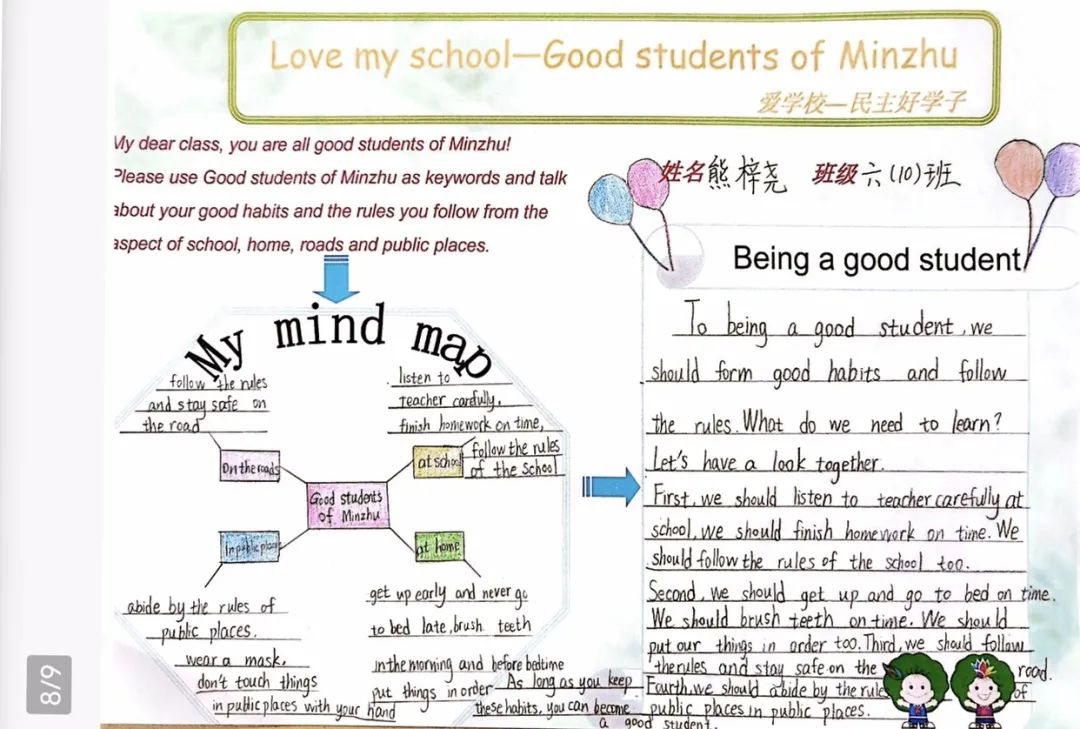 Love my school—Good students of Minzhu
爱学校—民主好学子
My dear class, you are all good students of Minzhu!
Please use Good students of Minzhu as keywords and talk
about your good habits and the rules you follow from the
aspect of school, home, roads and public places.
姓名 熊梓尧 班级 六(10)班
My mind map
follow the rules
and stay safe on
the road
listen to
teacher carefully,
finish homework on time,
follow the rules
of the school
On the roads
at school
Good students
of Minzhu
In public places
at home
abide by the rules of
public places.
wear a mask,
don't touch things
in public places with your hand
get up early and never go
to bed late, brush teeth
in the morning and before bedtime
put things in order
Being a good student
To being a good student, we
should form good habits and follow
the rules. What do we need to learn?
Let's have a look together.
First, we should listen to teacher carefully at
school, we should finish homework on time. We
should follow the rules of the school too.
Second, we should get up and go to bed on time.
We should brush teeth on time. We should
put our things in order too. Third, we should follow
the rules and stay safe on the road.
Fourth, we should abide by the rule of
public places in public places.
As long as you keep
these habits, you can become
a good student.
8/9